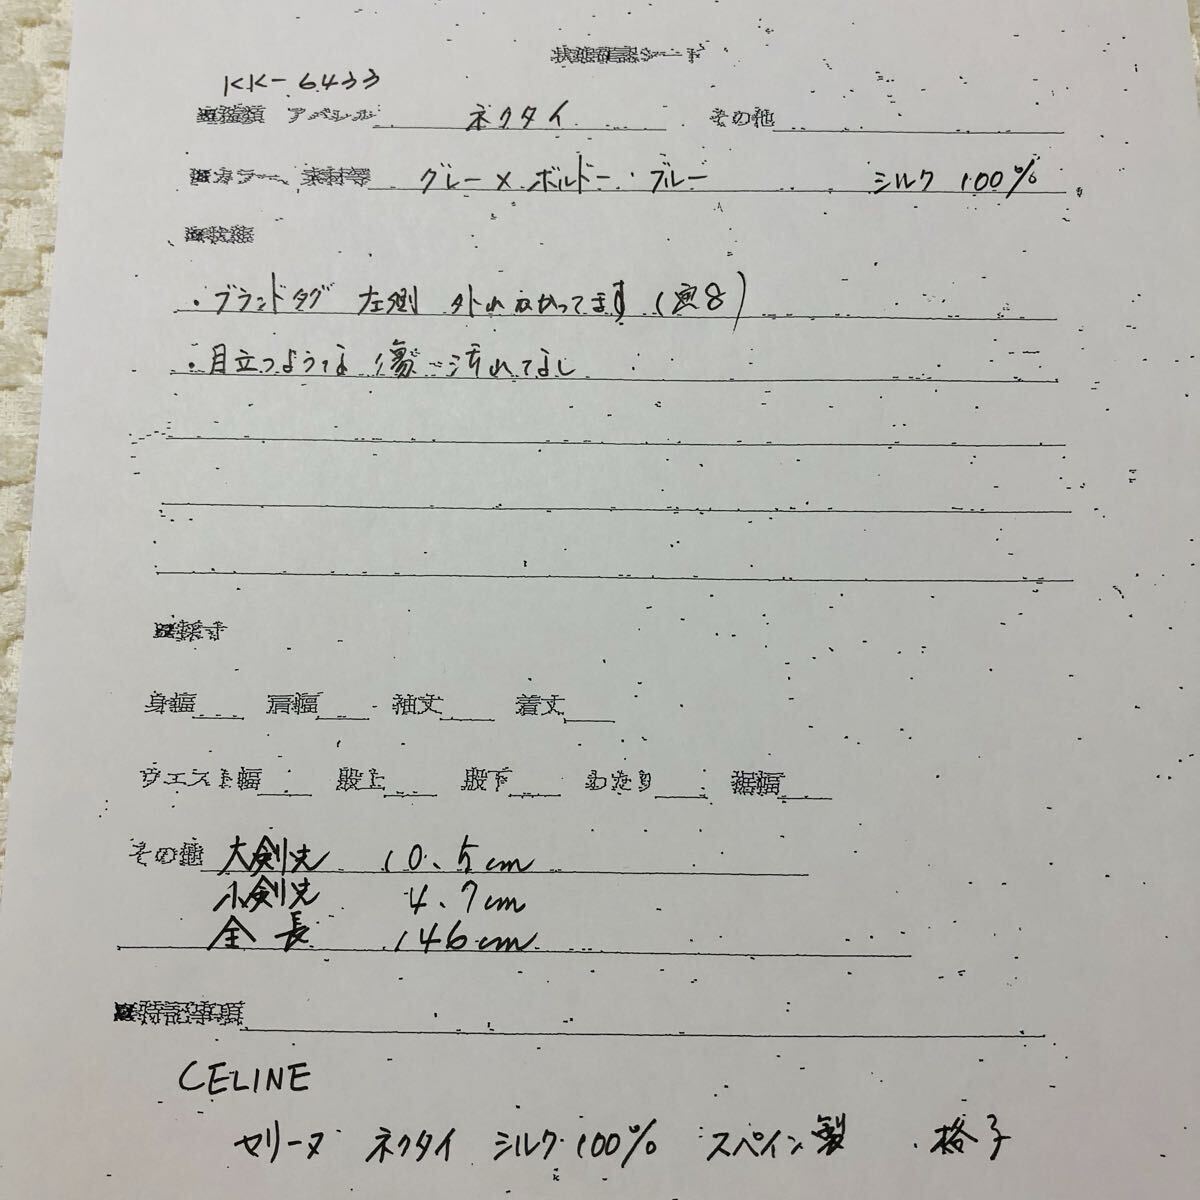 状態確認シート
KK-6433
■種類 アパレル ネクタイ その他
■カラー、素材等 グレー×ボルドー・ブルー シルク 100%
■状態
・ブランドタグ 左側 外れかかってます (画8)
・目立つような傷・汚れてなし
■採寸
身幅 肩幅 袖丈 着丈
ウエスト幅 股上 股下 わたり 裾幅
その他 大剣先 10.5cm
小剣先 4.7cm
全長 146cm
■特記事項
CELINE
セリーヌ ネクタイ シルク100% スペイン製 格子